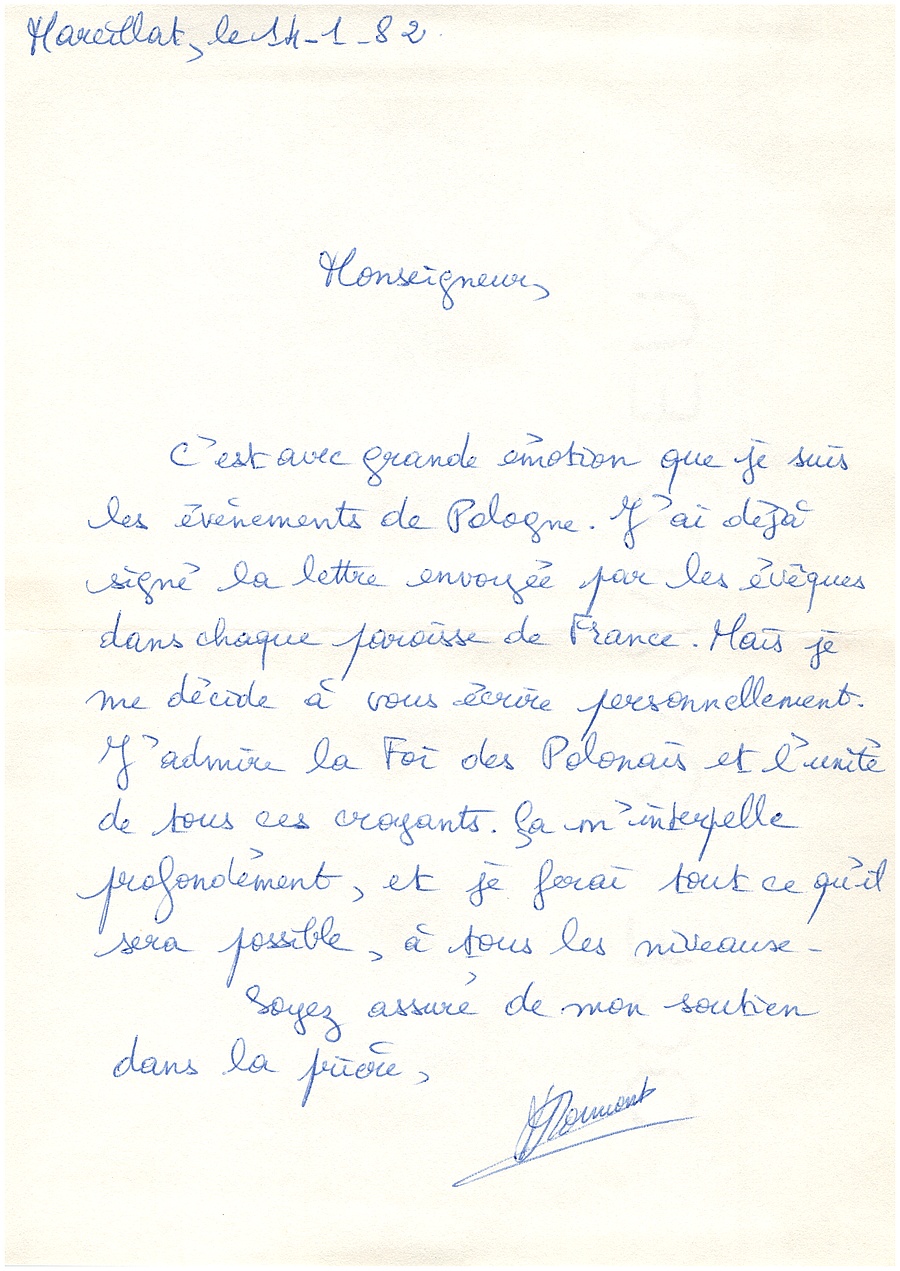 Marcillat, le 14-1-82.
Monseigneur,
C'est avec grande émotion que je suis
les événements de Pologne. J'ai déjà
signé la lettre envoyée par les évêques
dans chaque paroisse de France. Mais je
me décide à vous écrire personnellement.
J'admire la Foi des Polonais et l'unité
de tous ces croyants. Ça m'interpelle
profondément, et je ferai tout ce qu'il
sera possible, à tous les niveaux -
Soyez assuré de mon soutien
dans la prière,